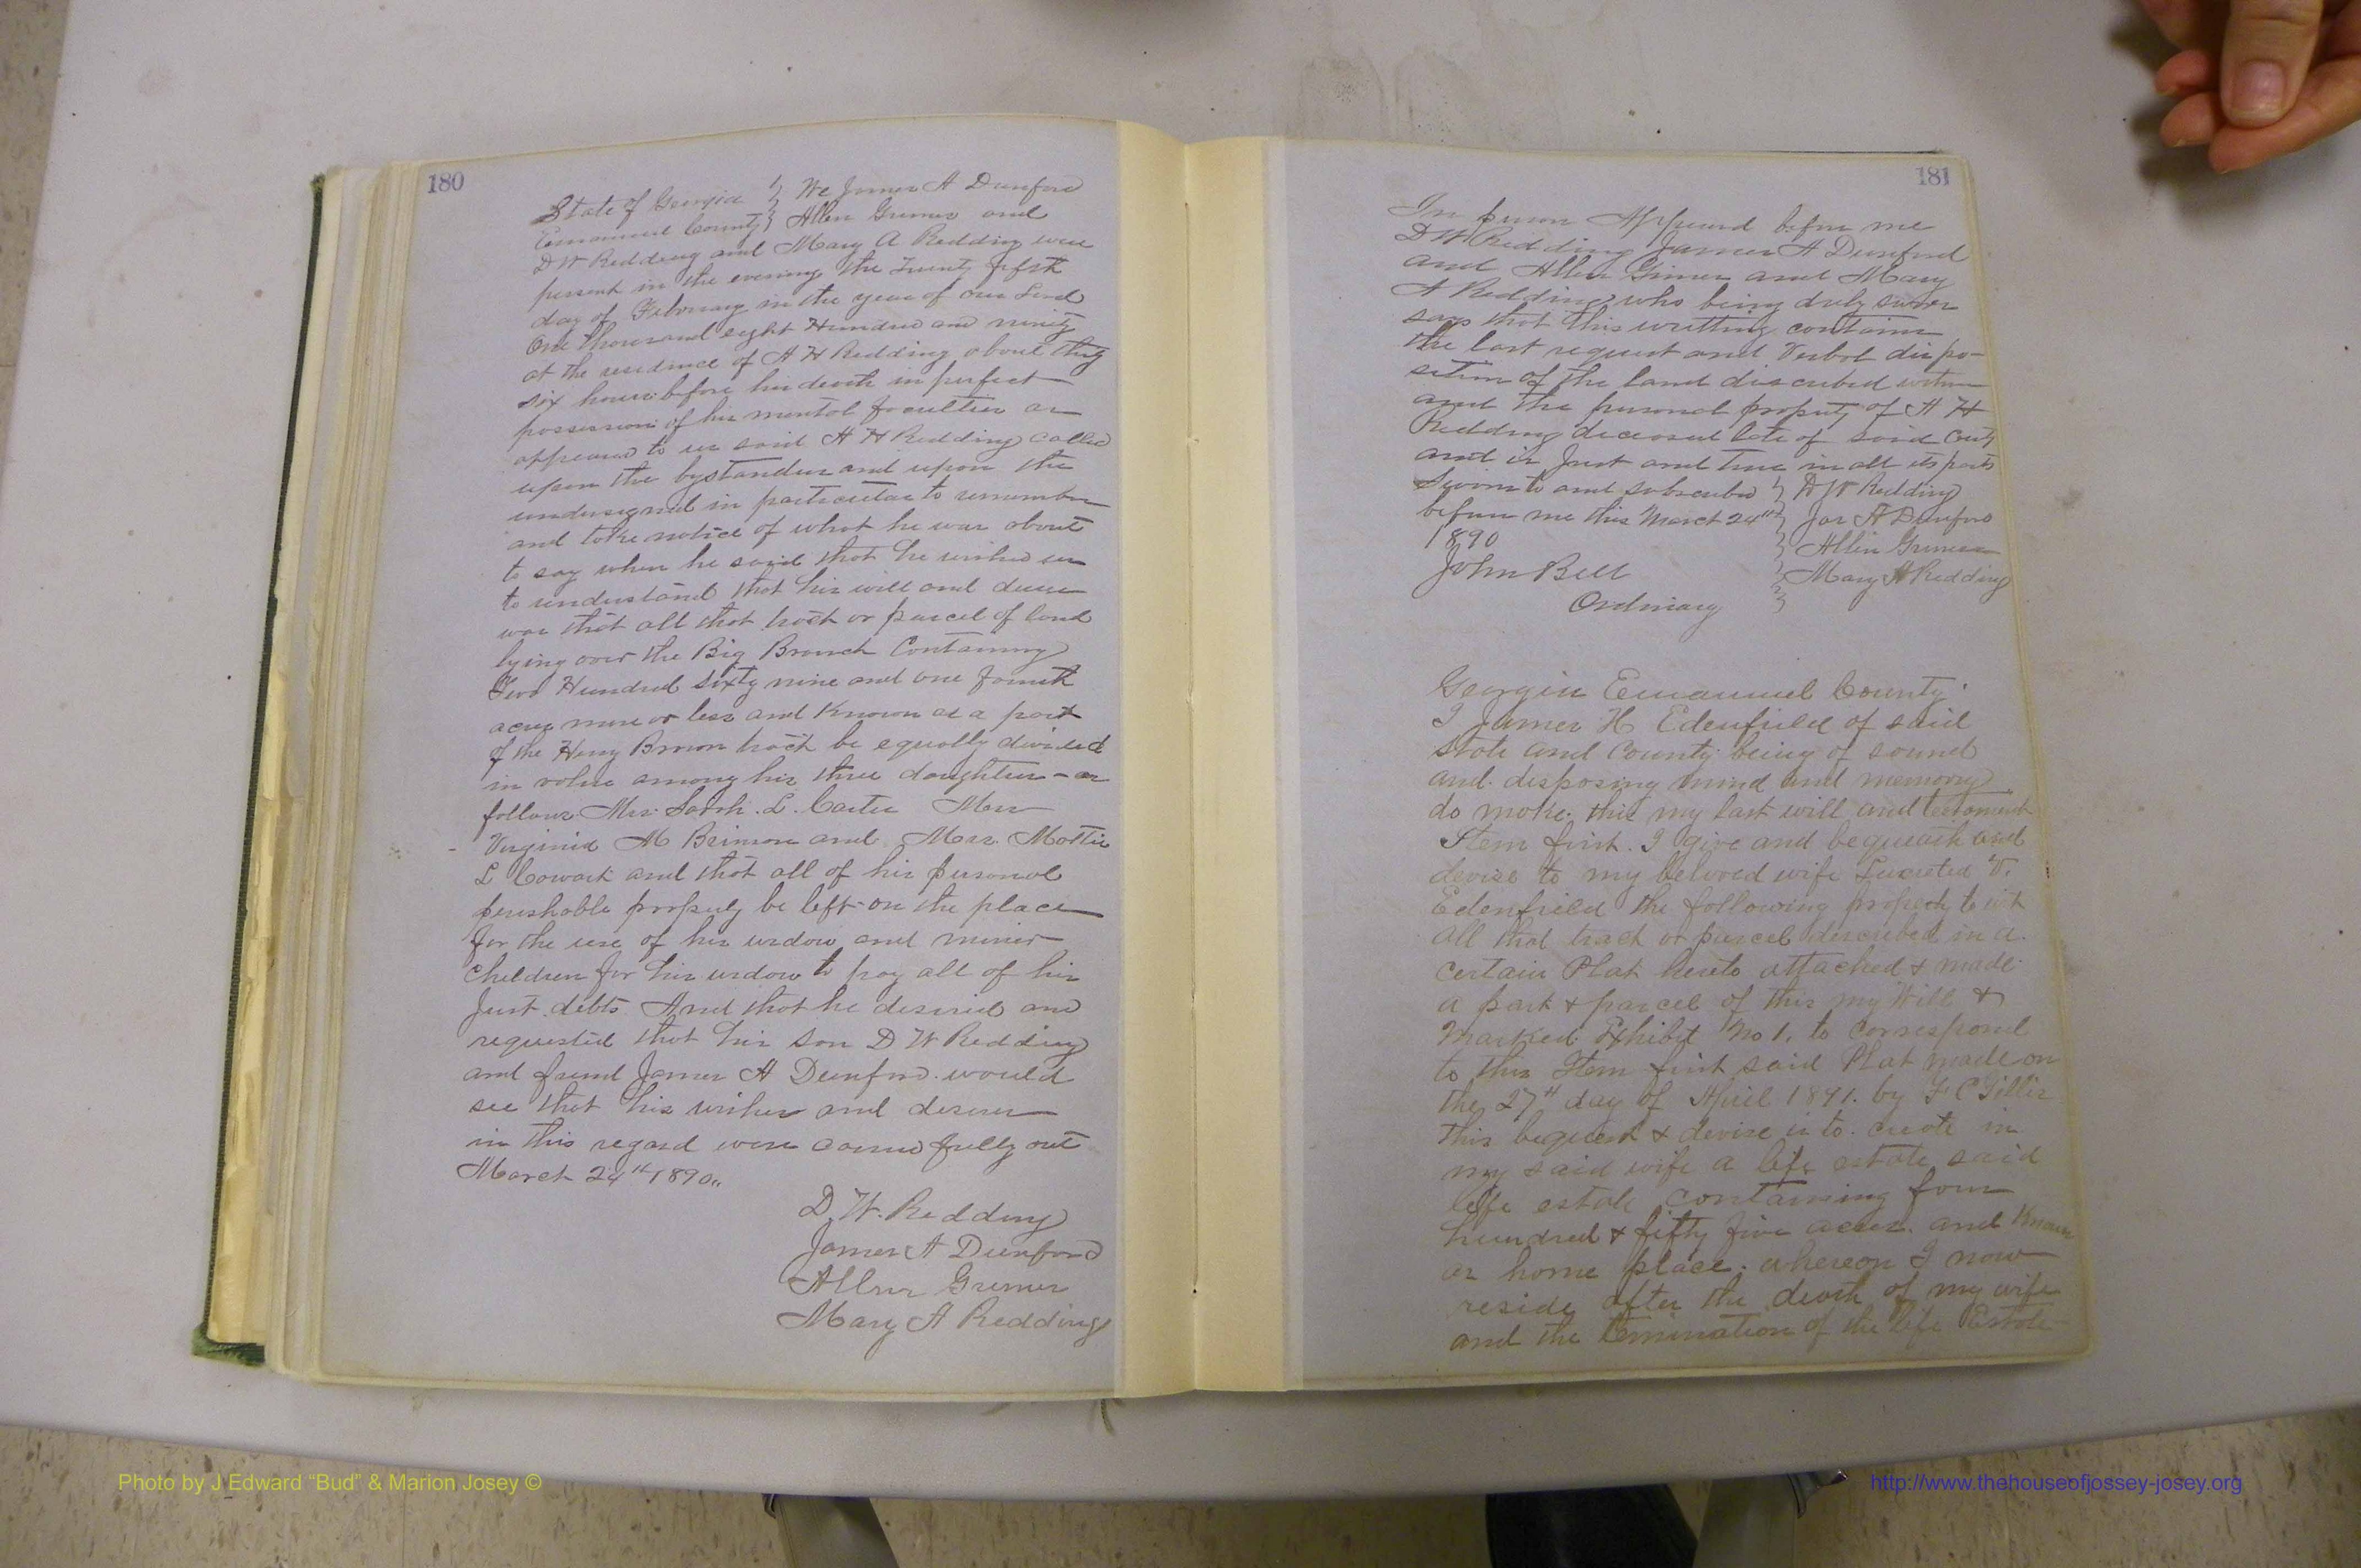 180
State of Georgia } We James A Dunford
Emanuel County } Allen Grimes and
D W Redding and Mary A Redding were
present in the evening the Twenty fifth
day of Febuary in the year of our Lord
One thousand eight Hundred and ninety
at the residence of A H Redding about thirty
six hours before his death in perfect
possession of his mental faculties as
appeared to us said A H Redding called
upon the bystanders and upon the
undersigned in particular to remember
and take notice of what he was about
to say when he said that he wished us
to understand that his will and desire
was that all that tract or parcel of land
lying over the Big Branch Containing
Two Hundred sixty nine and one fourth
acres more or less and Known as a part
of the Henry Brown tract be equally divided
in value among his three daughters - as
follows Mrs. Sarah. L. Carter Mrs
Virginia M Brinson and Mrs. Mattie
L Cowart and that all of his personal
perishable property be left on the place
for the use of his widow and minor
children for his widow to pay all of his
Just debts And that he desired and
requested that his son D W Redding
and friend James A Dunford would
see that his wishes and desires
in this regard were carried fully out
March 24th 1890.,
D. W. Redding
James A Dunford
Allen Grimes
Mary A Redding
181
In person Appeared before me
D W Redding James A Dunford
and Allen Grimes and Mary
A Redding who being duly sworn
says that this writting contains
the last request and Verbal dispo-
sition of the land discribed within
and the personal property of A H
Redding deceased late of said County
and is Just and true in all its parts
Sworn to and subscribed } D W Redding
before me this March 24th } Jas A Dunford
1890 } Allen Grimes
John Bell } Mary A Redding
Ordinary
Georgia Emanuel County.
I James H Edenfield of said
State and County being of sound
and disposing mind and memory
do make this my last will and testament
Item first. I give and bequeath and
devise to my beloved wife Lucreted V.
Edenfield the following property to wit
all that tract or parcel described in a
certain Plat hereto attached & made
a part & parcel of this my Will &
Marked Exhibit No 1. to correspond
to this Item first said Plat made on
the 27th day of April 1891. by F C Tillis
This bequest & devise is to create in
my said wife a life estate said
life estate containing four
hundred & fifty five acres. and Known
as home place. whereon I now
reside after the death of my wife
and the termination of the life Estate
Photo by J Edward “Bud” & Marion Josey ©
http://www.thehouseofjossey-josey.org